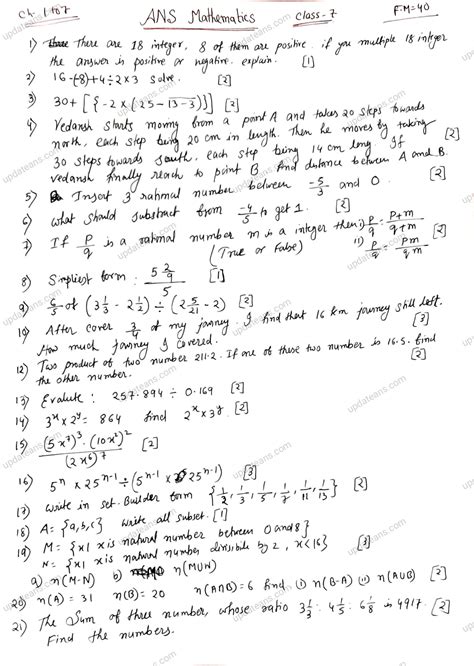 Ch. 1 to 7 ANS Mathematics Class-7 F.M=40
1) There are 18 integer, 8 of them are positive. if you multiple 18 integer
the answer is positive or negative. explain. [1]
2) 16-(8)+4÷2×3 solve. [2]
3) 30+[{-2×(25-13-3)}] [2]
4) Vedansh starts moving from a point A and takes 20 steps towards
north, each step being 20 cm in length. Then he moves by taking
30 steps towards south, each step being 14 cm long. If
vedansh finally reach to point B. And distance between A and B.
5) Insert 3 rational number between -5/3 and 0. [2]
6) what should substract from -4/5 to get 1. [2]
7) If p/q is a rational number m is a integer then i) p/q = p+m/q+m
(True or False) ii) p/q = pm/qm
8) Simpliest form : 5 2/9 / 5 [1]
9) 6/5 of (3 1/3 - 2 1/2) ÷ (2 5/21 - 2) [2]
10) After cover 3/4 of my journey I find that 16 km journey still left.
How much Journey I covered. [3]
12) Two product of two number 211.2. If one of these two number is 16.5. find
the other number. [2]
13) Evalute : 257.894 ÷ 0.169 [2]
14) 3ˣ×2ʸ = 864 find 2ˣ×3ʸ. [2]
15) (5x⁷)³·(10x²)² / (2x⁶)⁷ [2]
16) 5ⁿ × 25ⁿ⁻¹ ÷ (5ⁿ⁻¹ × 25ⁿ⁻¹) [3]
17) write in set-Builder form {1/2, 1/3, 1/5, 1/7, 1/11, 1/13} [2]
18) A= {a,b,c} write all subset. [1]
19) M= {x | x is natural number between 0 and 8}
N= {x | x is natural number divisible by 2, x<16} [3]
a) n(M-N) b) n(MUN)
20) n(A) = 31 n(B) = 20 n(A∩B)=6 find (i) n(B-A) (ii) n(AUB) [2]
21) The Sum of three number, whose ratio 3 1/3 : 4 1/5 : 6 1/8 is 4917. [2]
Find the numbers.
updateans.com